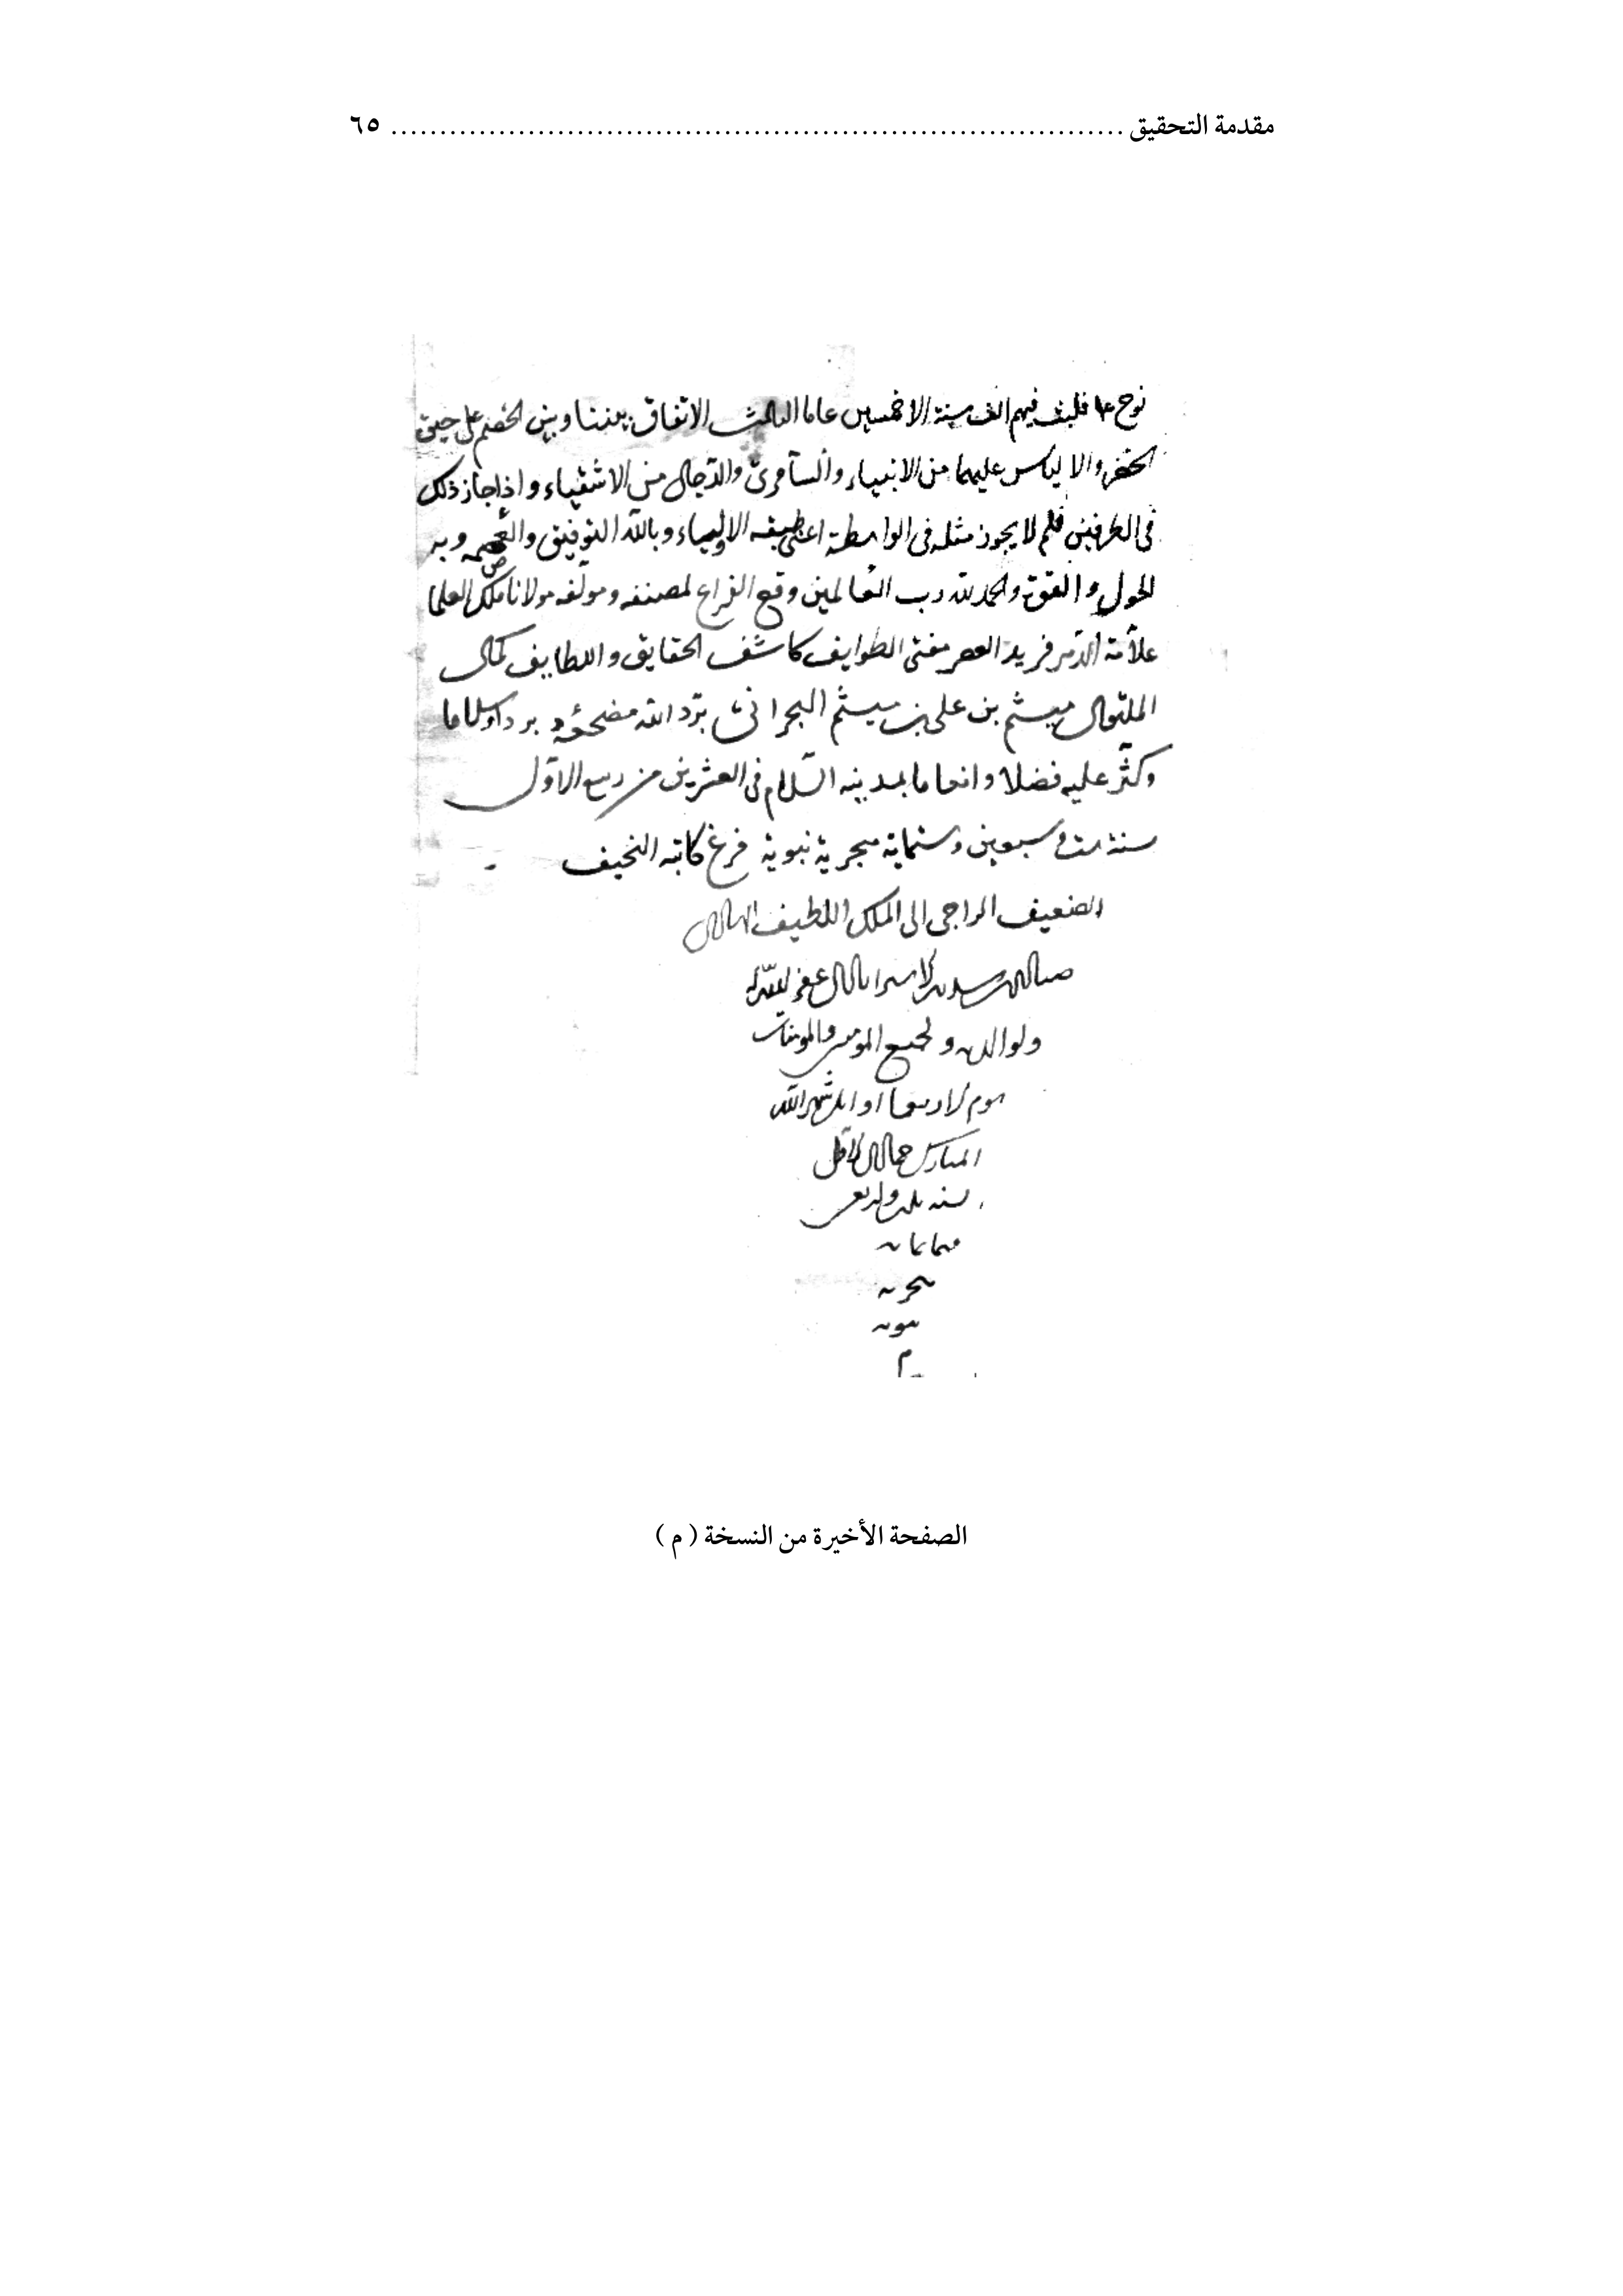 مقدمة التحقيق ........................................................................... ٦٥
نوح ع‍ا فلبث فيهم الف سنة الا خمسين عاما الثالث الاتفاق بيننا وبين الخصم على حيوة
الخضر والالياس عليهما من الانبياء والسآمرىّ والدّجال من الاشقياء واذا جاز ذلك
فى الطرفين فلم لا يجوز مثله فى الواسطة اعنى طبقه الاولياء وبالله التوفيق والعصمه وبه
الحول والقوة والحمد لله رب العالمين وقع الفراغ لمصنفه ومولّفه مولانا ملك العلما
علاّمة الدّهر فريد العصر مفتى الطوايف كاشف الحقايق واللطايف كمال
الملة ميثم بن على بن ميثم البحرانى برّد الله مضجعه بردا وسلاما
وكثّر عليه فضلا وانعاما بمدينه السّلام فى العشرين من ربيع الاوّل
سنة ست وسبعين وستماية هجرية نبوية فرغ كاتبه النحيف
الضعيف الراجى الى الملك اللطيف
عفر الله له
ولوالديه ولجميع المومنين والمومنات
يوم الاربعا اوايل شهر الله
المبارك جمادى الاول
سنه ثلث واربعين
هجريه
نبويه
م
الصفحة الأخيرة من النسخة ( م )